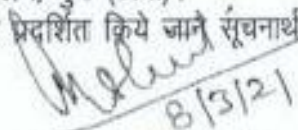 प्रदर्शित किये जाने सूचनार्थ
8/3/21